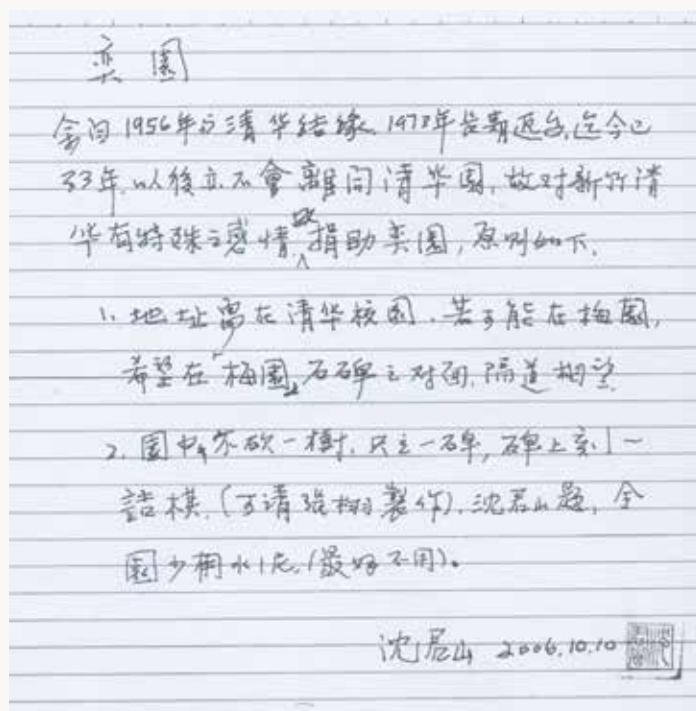 奕園
余自1956年与清华結緣,1973年長期返台,迄今已
33年,以後亦不會離開清华園,故对新竹清
华有特殊之感情,欲捐助奕園,原則如下.
1. 地址需在清华校园.若可能在梅園,
希望在「梅園」石碑之对面,隔道相望
2. 園中不砍一樹.只立一碑,碑上刻一
詰棋.(可請張栩製作).沈君山題,全
園少用水泥.(最好不用)。
沈君山 2006.10.10